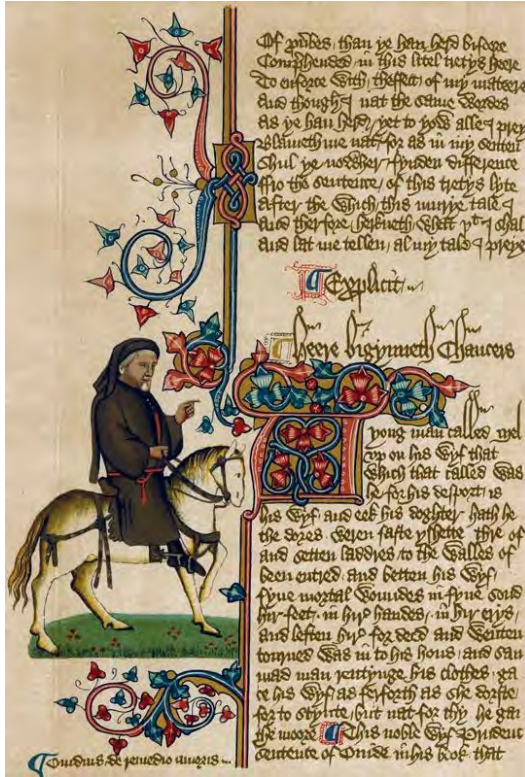 Of prūbes, than ye han herd bifore
Comprehended in this litel tretys heere
To enforce with, theffect of my mateere
And though I nat the same wordes
as ye han herd, yet to yow alle I preye
Blameth me nat, for as in my senten
Shul ye nowher fynden difference
ffro the sentence, of this tretys lyte
after the which, this murye tale I
and therfore, herkneth, what yt I shal
and lat me tellen, al my tale I preye
Explicit
heere bigynneth Chaucers
A yong man called Mel
vp on his wyf that
which that called was
he for his desport is
his wyf and eek his doghter hath he
the dores weren faste yshette thre of
and setten laddres to the walles of
been entred and betten his wyf
fyue mortal woundes in fyue sond
hir feet in hire handes in hir erys
and leften hire for deed and wenten
tourned was in to his hous and sau
mad man rentynge his clothes ga
ce his wyf as ferforth as she dorste
for to stynte but nat for thy he gan
the moore This noble wyf Prudent
sentence of Ouide in his book that
Ouidius de remedio amoris